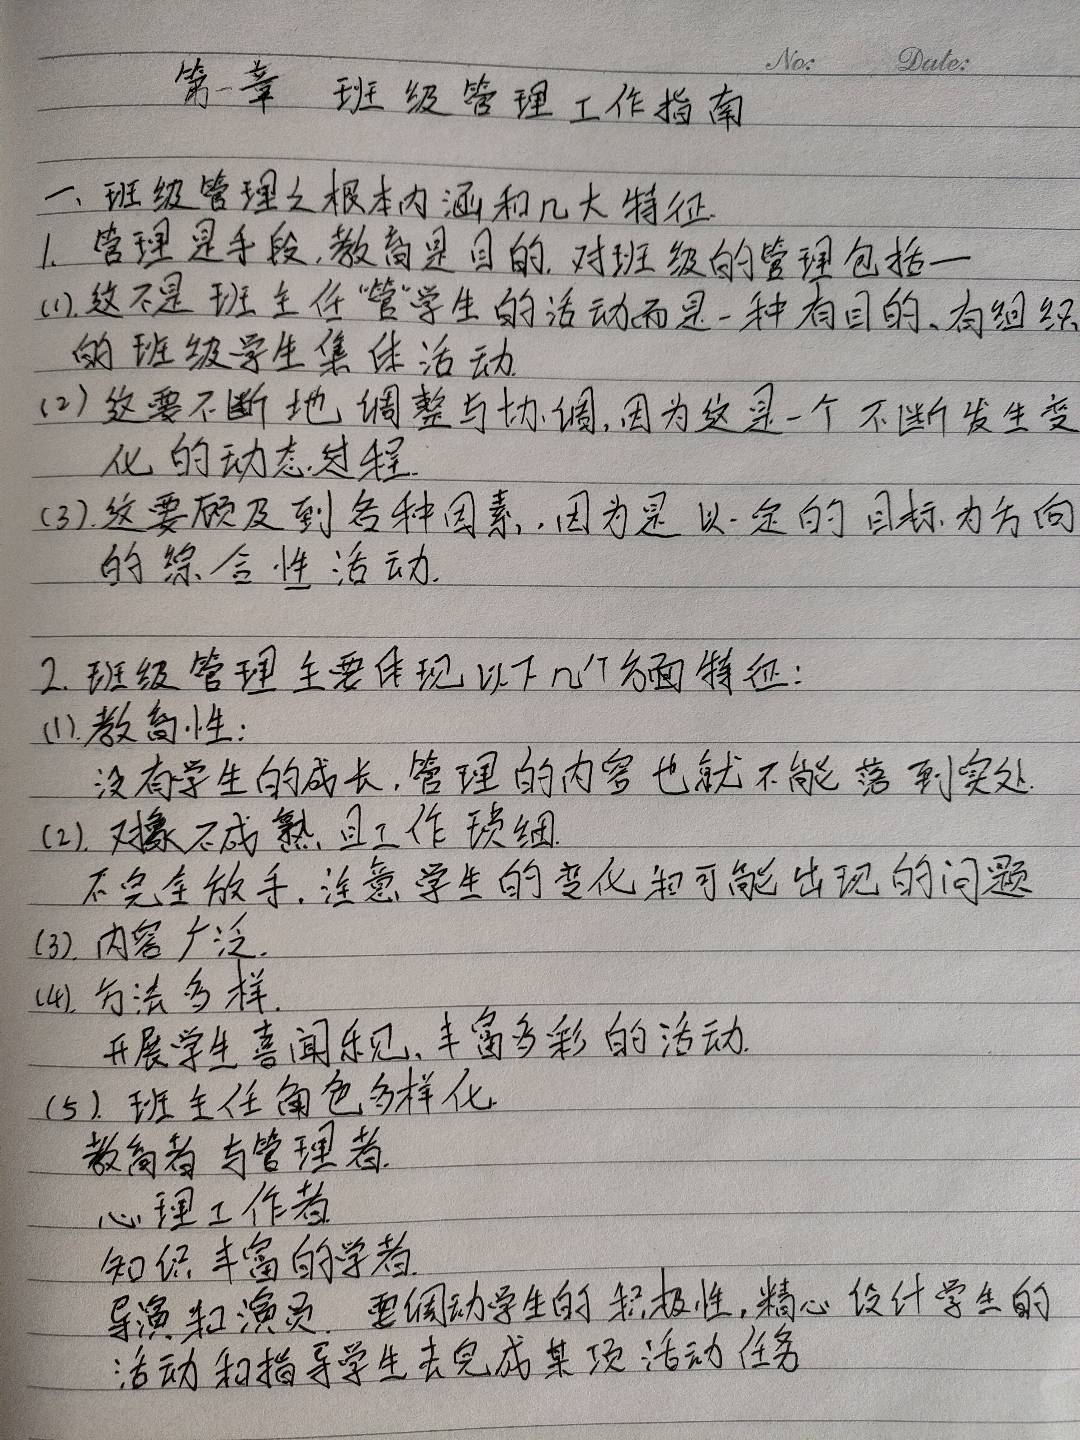 No: Date:
第一章 班级管理工作指南
一、班级管理之根本内涵和几大特征.
1. 管理是手段,教育是目的. 对班级的管理包括一
(1).这不是班主任"管"学生的活动而是一种有目的、有组织
的班级学生集体活动.
(2)这要不断地调整与协调,因为这是一个不断发生变
化的动态过程.
(3).这要顾及到各种因素,.因为是以一定的目标为方向
的综合性活动.
2. 班级管理主要体现以下几个方面特征:
(1).教育性:
没有学生的成长,管理的内容也就不能落到实处.
(2). 对象不成熟,且工作琐细.
不完全放手,注意学生的变化和可能出现的问题
(3). 内容广泛.
(4). 方法多样.
开展学生喜闻乐见、丰富多彩的活动.
(5). 班主任角色多样化
教育者与管理者.
心理工作者
知识丰富的学者.
导演和演员. 要调动学生的积极性,精心设计学生的
活动和指导学生去完成某项活动任务